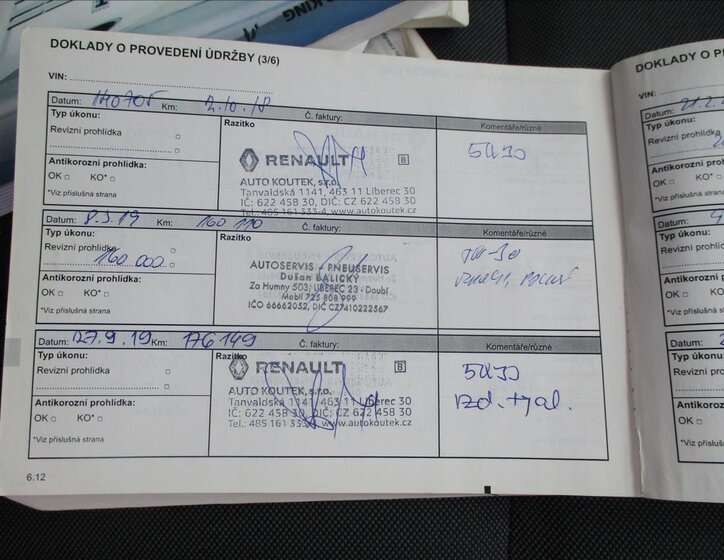 KING
DOKLADY O PROVEDENÍ ÚDRŽBY (3/6)
VIN:
Datum: 140705 Km: 2.10.18 Č. faktury:
Typ úkonu:
Revizní prohlídka
Antikorozní prohlídka:
OK KO*
*Viz příslušná strana
Razítko
RENAULT 8
AUTO KOUTEK, s.r.o.
Tanvaldská 1141, 463 11 Liberec 30
IČ: 622 458 30, DIČ: CZ 622 458 30
Tel.: 485 161 333-4 www.autokoutek.cz
Komentáře/různé
5W30
Datum: 8.3.19 Km: 160 110 Č. faktury:
Typ úkonu:
Revizní prohlídka
160 000
Antikorozní prohlídka:
OK KO*
*Viz příslušná strana
Razítko
AUTOSERVIS - PNEUSERVIS
Dušan BALICKÝ
Za Humny 503, LIBEREC 23 - Doubí
Mobil 725 808 999
IČO 66662052, DIČ CZ7410222567
Komentáře/různé
5W-30
Datum: 27.9.19 Km: 176149 Č. faktury:
Typ úkonu:
Revizní prohlídka
Antikorozní prohlídka:
OK KO*
*Viz příslušná strana
Razítko
RENAULT 8
AUTO KOUTEK, s.r.o.
Tanvaldská 1141, 463 11 Liberec 30
IČ: 622 458 30, DIČ: CZ 622 458 30
Tel.: 485 161 333-4 www.autokoutek.cz
Komentáře/různé
5W30
vzd. + pal.
6.12
DOKLADY O P
VIN:
Datum: 21.2.
Typ úkonu:
Revizní prohlídk
Antikorozní pro
OK KO*
*Viz příslušná stran
Datum: 9
Typ úkonu:
Revizní prohlídk
Antikorozní pro
OK KO*
*Viz příslušná str
Datum:
Typ úkonu:
Revizní prohlí
Antikorozní p
OK
*Viz příslušná s